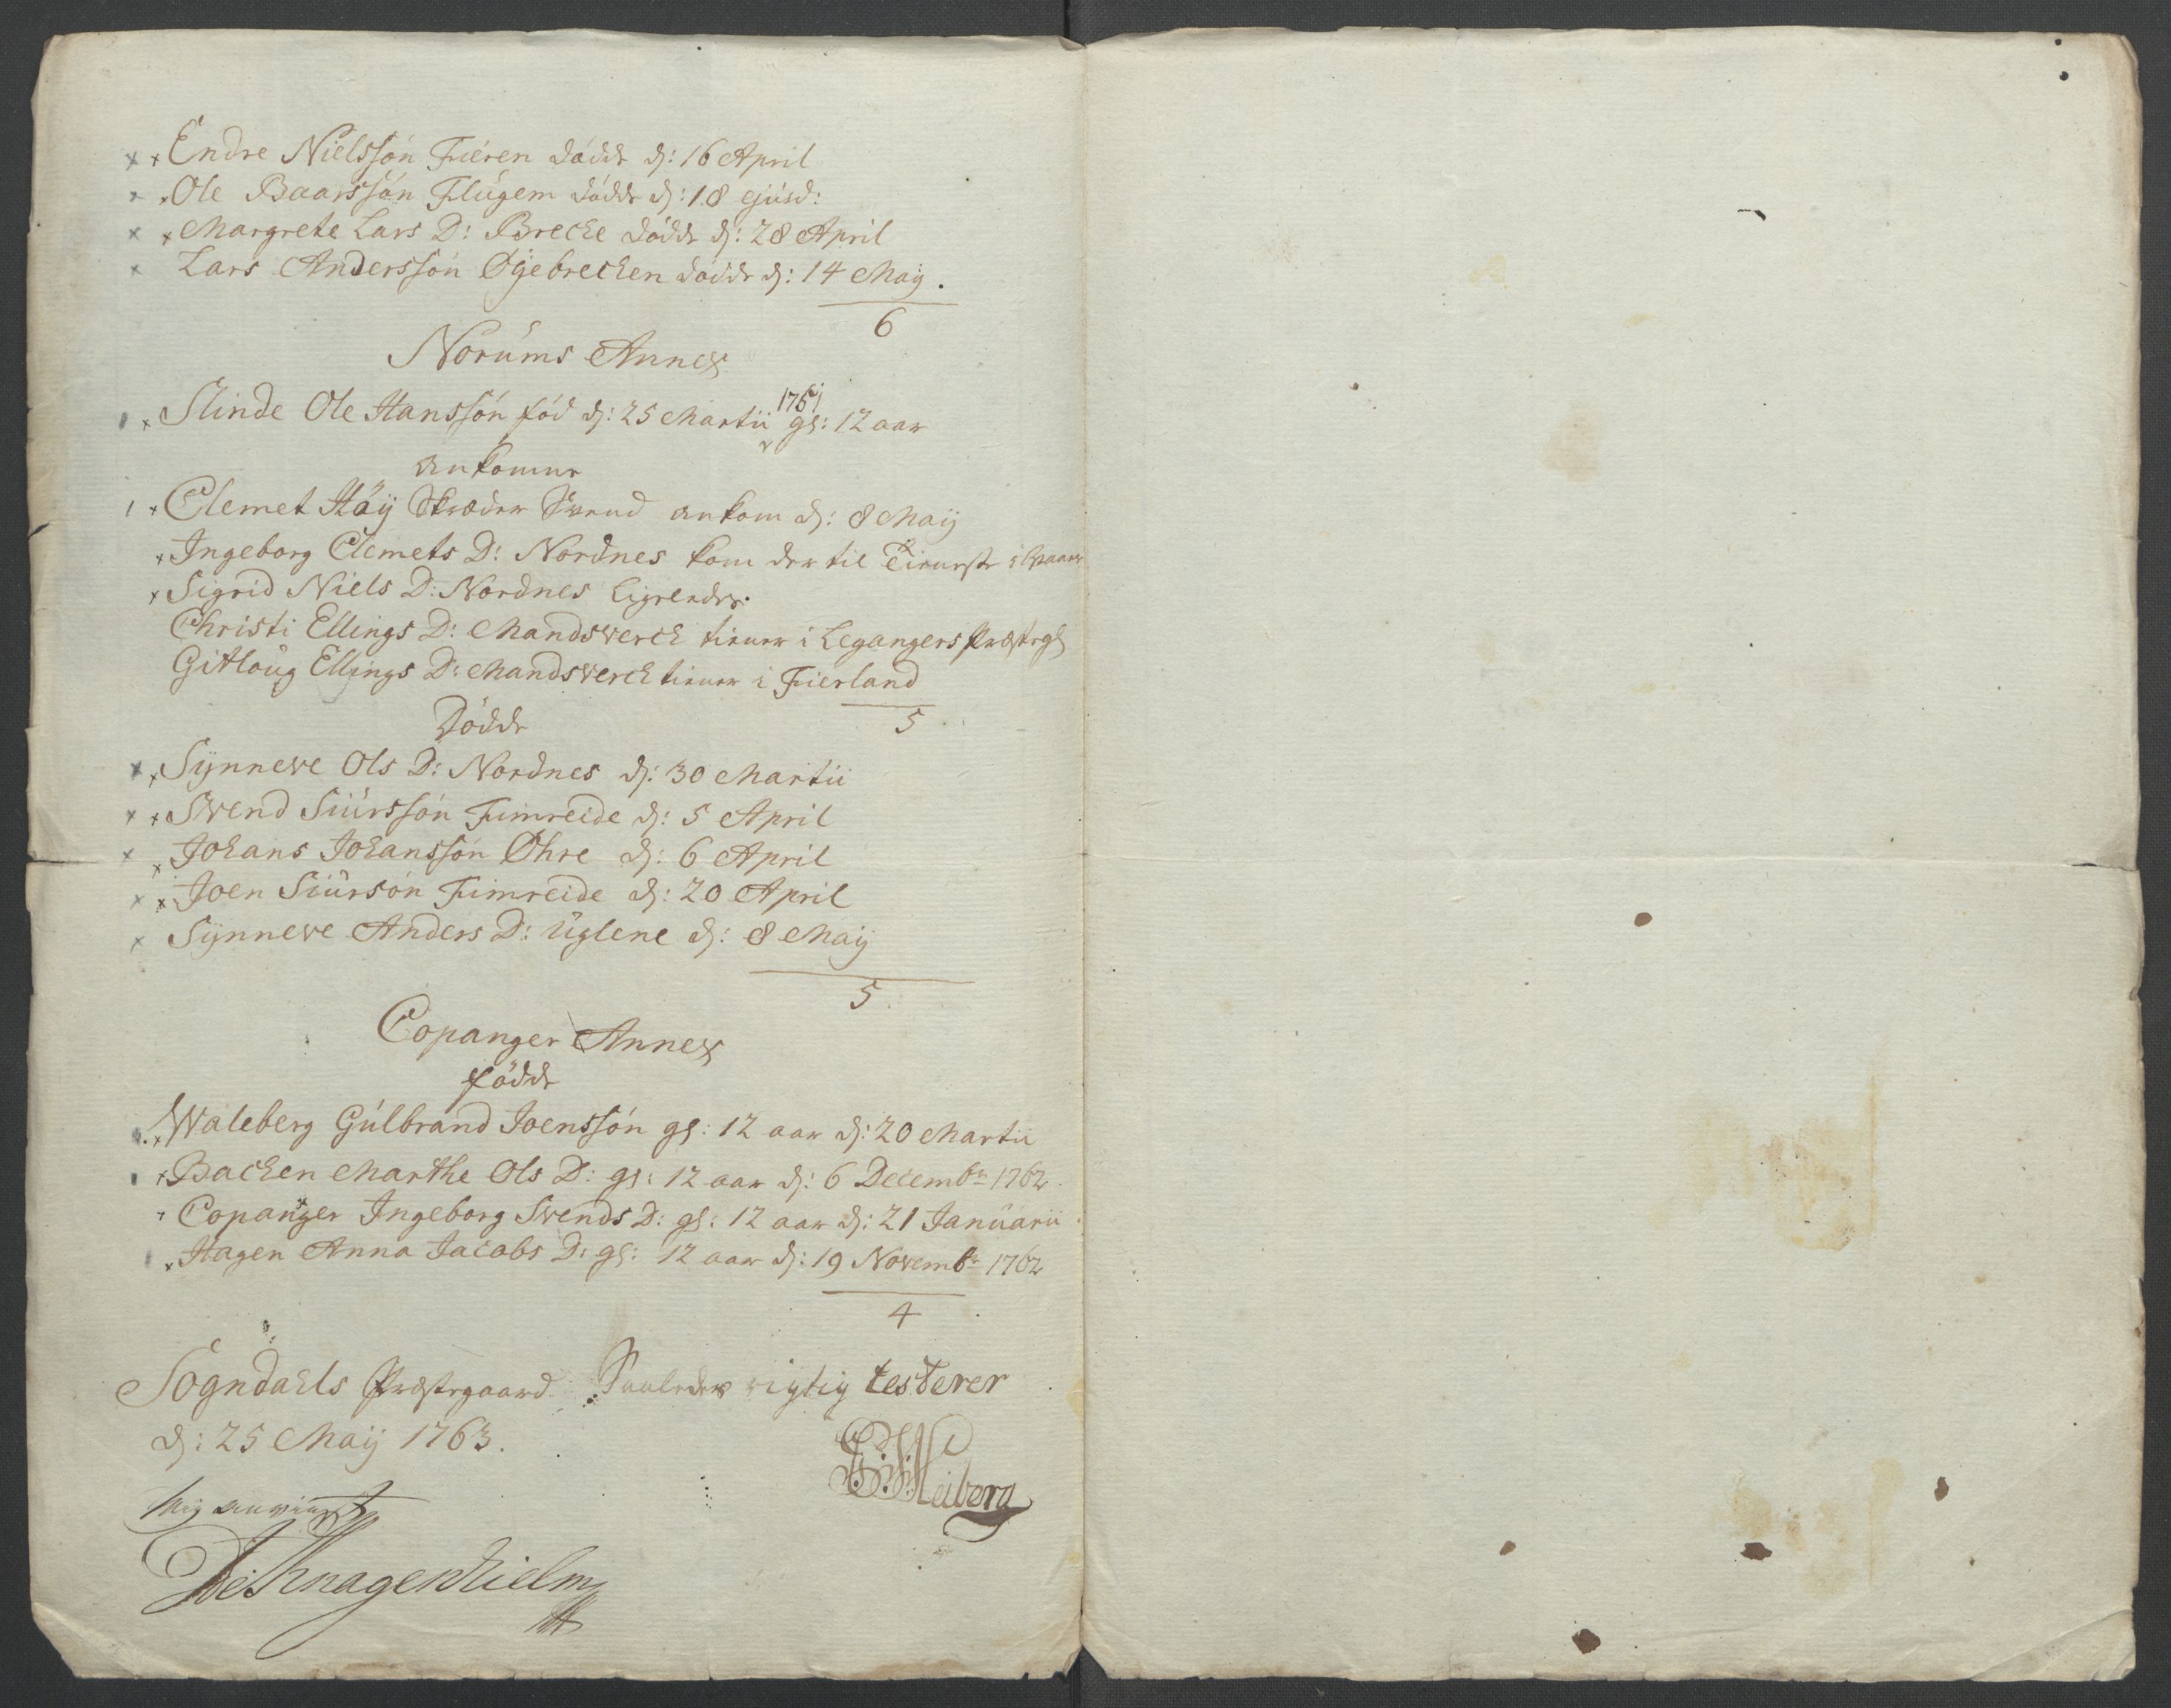 x x Endre Nielssøn Fieren døde d: 16 April
x x Ole Baarssøn Flugem døde d: 18 ejusd:
x x Margrete Lars D: Brecke døde d: 28 April
x Lars Anderssøn Øyebrecken døde d: 14 Maÿ.
6
Norums Annex
1 x Slinde Ole Hanssøn fød d: 25 Martii 1751 gl: 12 aar
ankomne
1 x Clemet Høÿ Skræder Svend ankom d: 8 Maÿ
x Ingeborg Clemets D: Nordnes kom der til Tieneste i Vaar
x Sigrid Niels D: Nordnes ligeledes.
Christi Ellings D: Mandsverck tiener i Legangers Præstegl
Gitloug Ellings D: Mandsverck tiener i Fierland
5
Døde
x x Sÿnneve Ols D: Nordnes d: 30 Martii
x x Svend Siurssøn Fimreide d: 5 April
x x Johans Johanssøn Øhre d: 6 April
x x Joen Siursøn Fimreide d: 20 April
x Sÿnneve Anders D: Uglene d: 8 Maÿ
5
Copanger Annex
fødde
1. x Waleberg Gulbrand Joenssøn gl: 12 aar d: 20 Martii
1 x Backen Marthe Ols D: gl: 12 aar d: 6 Decembr 1762
x Copanger Ingeborg Svends D: gl: 12 aar d: 21 Januarii
1 x Hagen Anna Jacobs D: gl: 12 aar d: 19 Novembr 1762
4
Sogndahls Præstegaard Saaledes rigtig testerer
d: 25 Maÿ 1763.
Heiberg
Mig anviist
Knagenhielm